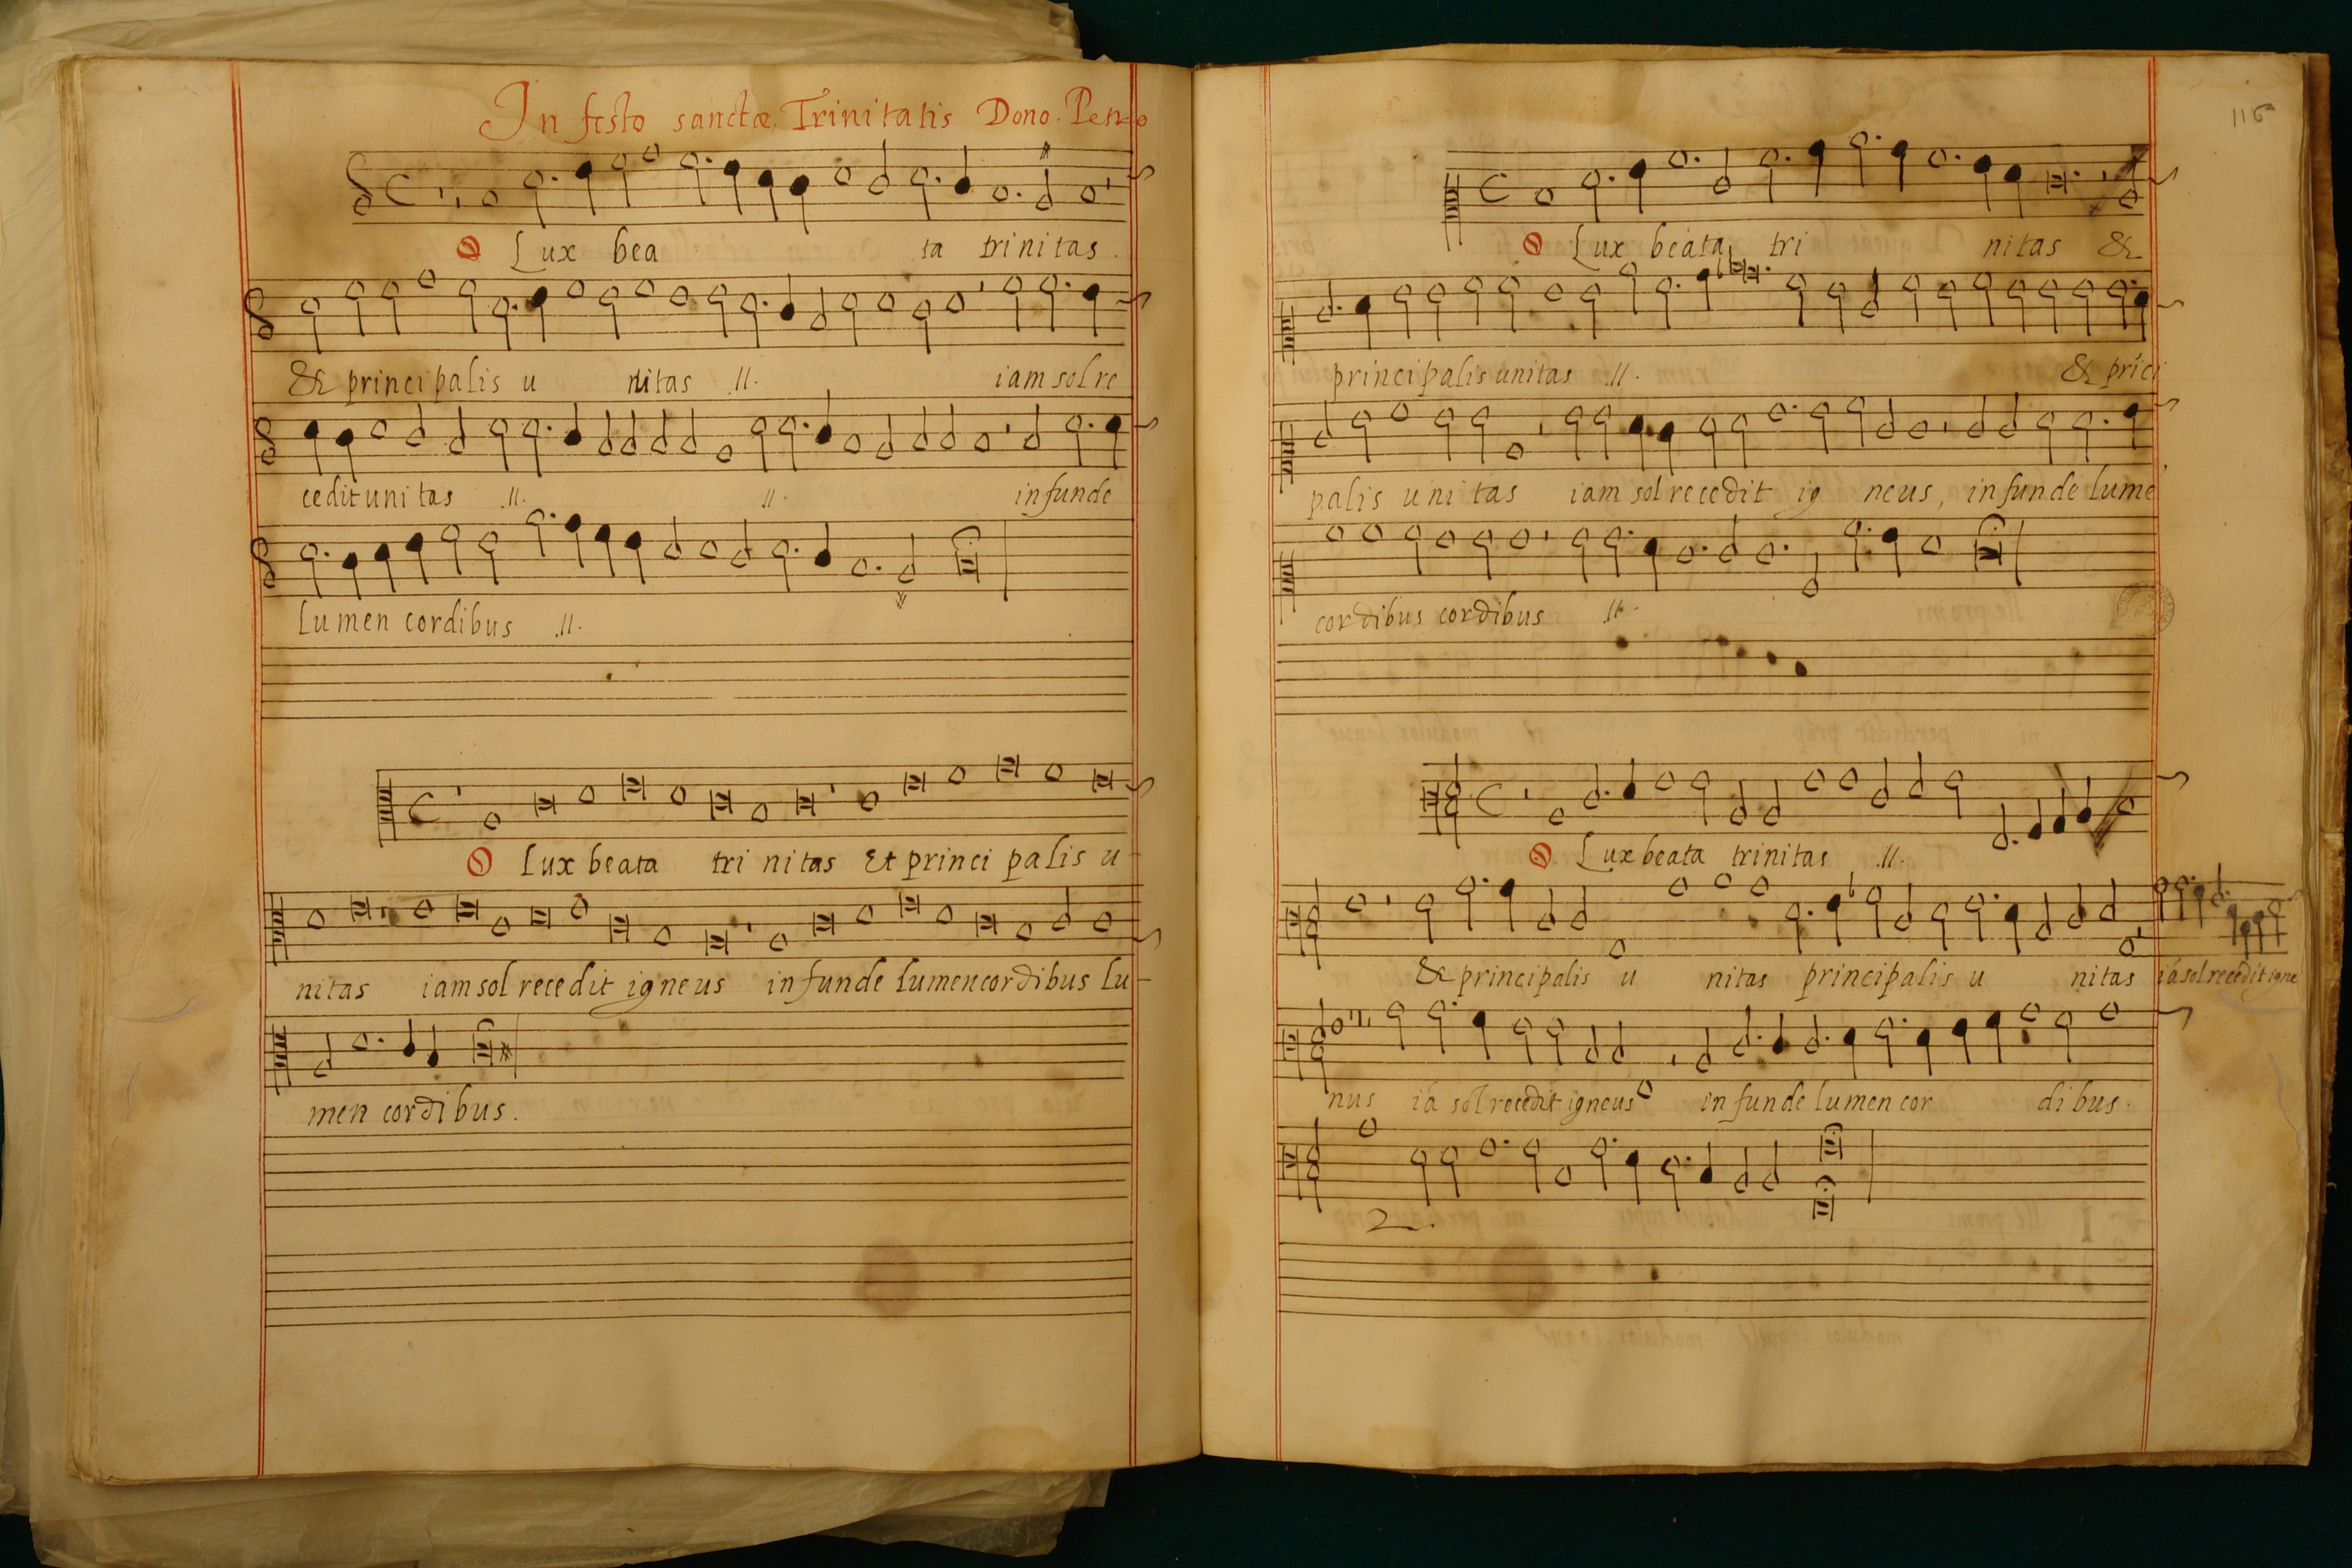 In festo sanctæ Trinitatis Dono.
O Lux bea ta trinitas.
& principalis u nitas .ıı. iam sol re
cedit unitas .ıı. .ıı. infunde
lumen cordibus .ıı.
O Lux beata tri nitas Et princi palis u-
nitas iam sol recedit igneus infunde lumen cordibus lu-
men cordibus.
116
O Lux beata tri nitas &
principalis unitas .ıı. & príci
palis unitas iam sol recedit ig neus, infunde lume
cordibus cordibus .ıı.
O Lux beata trinitas .ıı.
& principalis u nitas principalis u nitas iá sol recedit igne
nus iá sol recedit igneus infunde lumen cor dibus.
2.